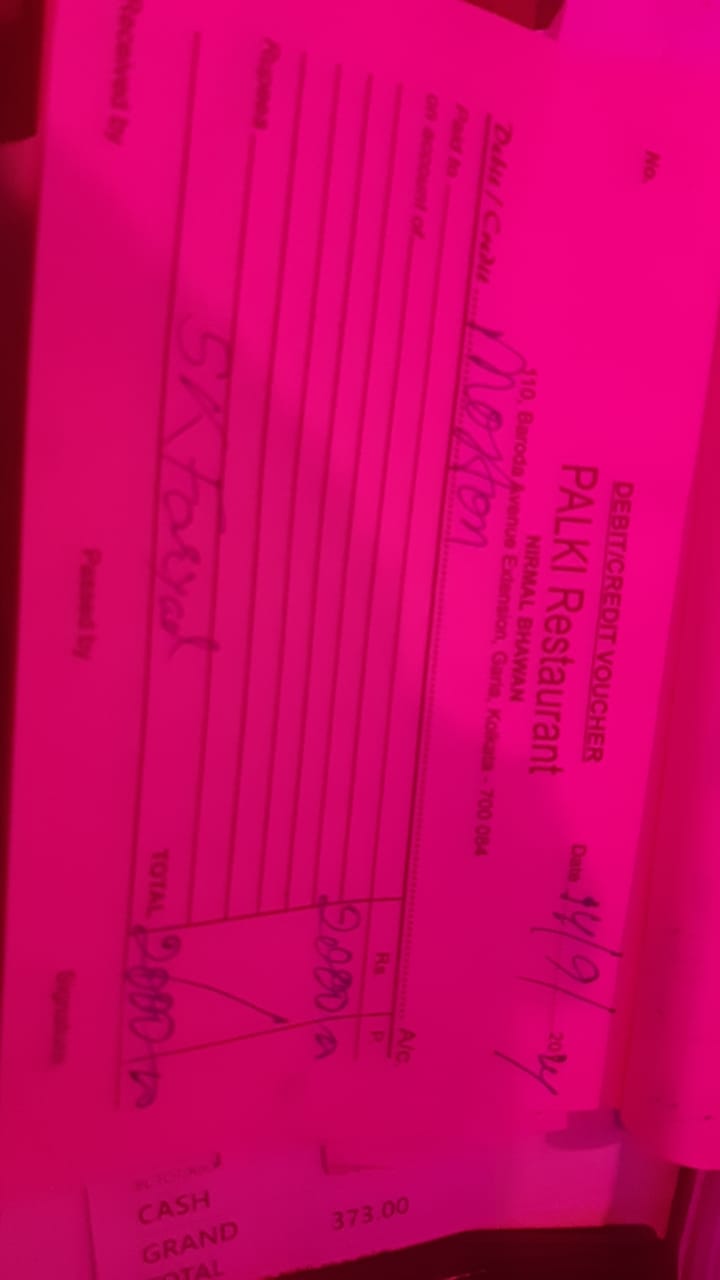 No.
DEBIT/CREDIT VOUCHER
PALKI Restaurant
NIRMAL BHAWAN
110, Baroda Avenue Extension, Garia, Kolkata - 700 084
Date 14/9/ 2024
Debit / Credit A/c.
Paid to
on account of
Rs P.
2000
Rupees
TOTAL 2000
SK
Received by Passed by Signature
CASH 373.00
GRAND
TOTAL